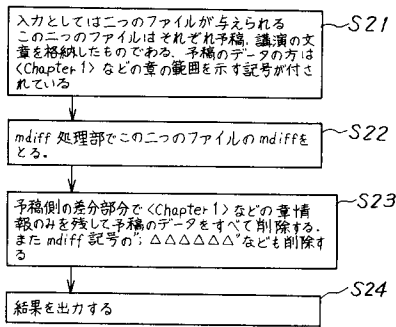 入力としては二つのファイルが与えられる
この二つのファイルはそれぞれ予稿、講演の文
章を格納したものである、予稿のデータの方は
<Chapter1>などの章の範囲を示す記号が付さ
れている
S21
mdiff処理部でこの二つのファイルのmdiffを
とる。
S22
予稿側の差分部分で<Chapter1>などの章情
報のみを残して予稿のデータをすべて削除する.
またmdiff記号の";△△△△△△"なども削除す
る
S23
結果を出力する
S24